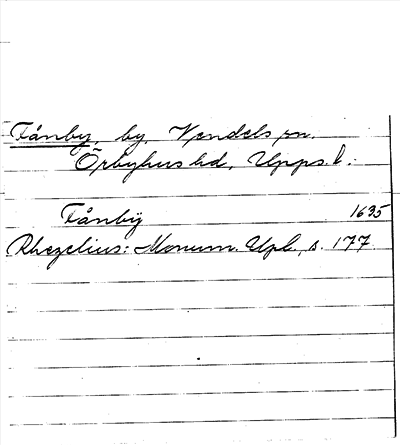 Fånby, by, Vendels sn.
Örbyhus hd, Upps. l.
Fånbÿ 1635
Rhezelius: Monum. Upl., s. 177